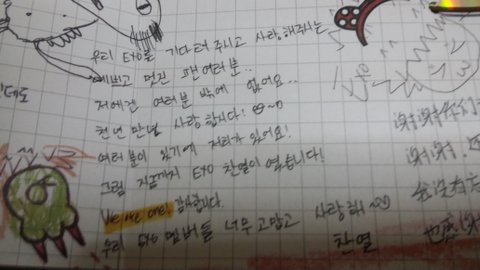 우리 EXO를 기다려 주시고 사랑해주시는
예쁘고 멋진 팬 여러분..
저에겐 여러분 밖에 없어요..
천년만년 사랑합니다!
여러분이 있기에 저희가 있어요!
그럼 지금까지 EXO 찬열이 였습니다!
We are one! 감사합니다.
우리 EXO 멤버들 너무 고맙고 사랑해
찬열
谢谢你们
谢谢